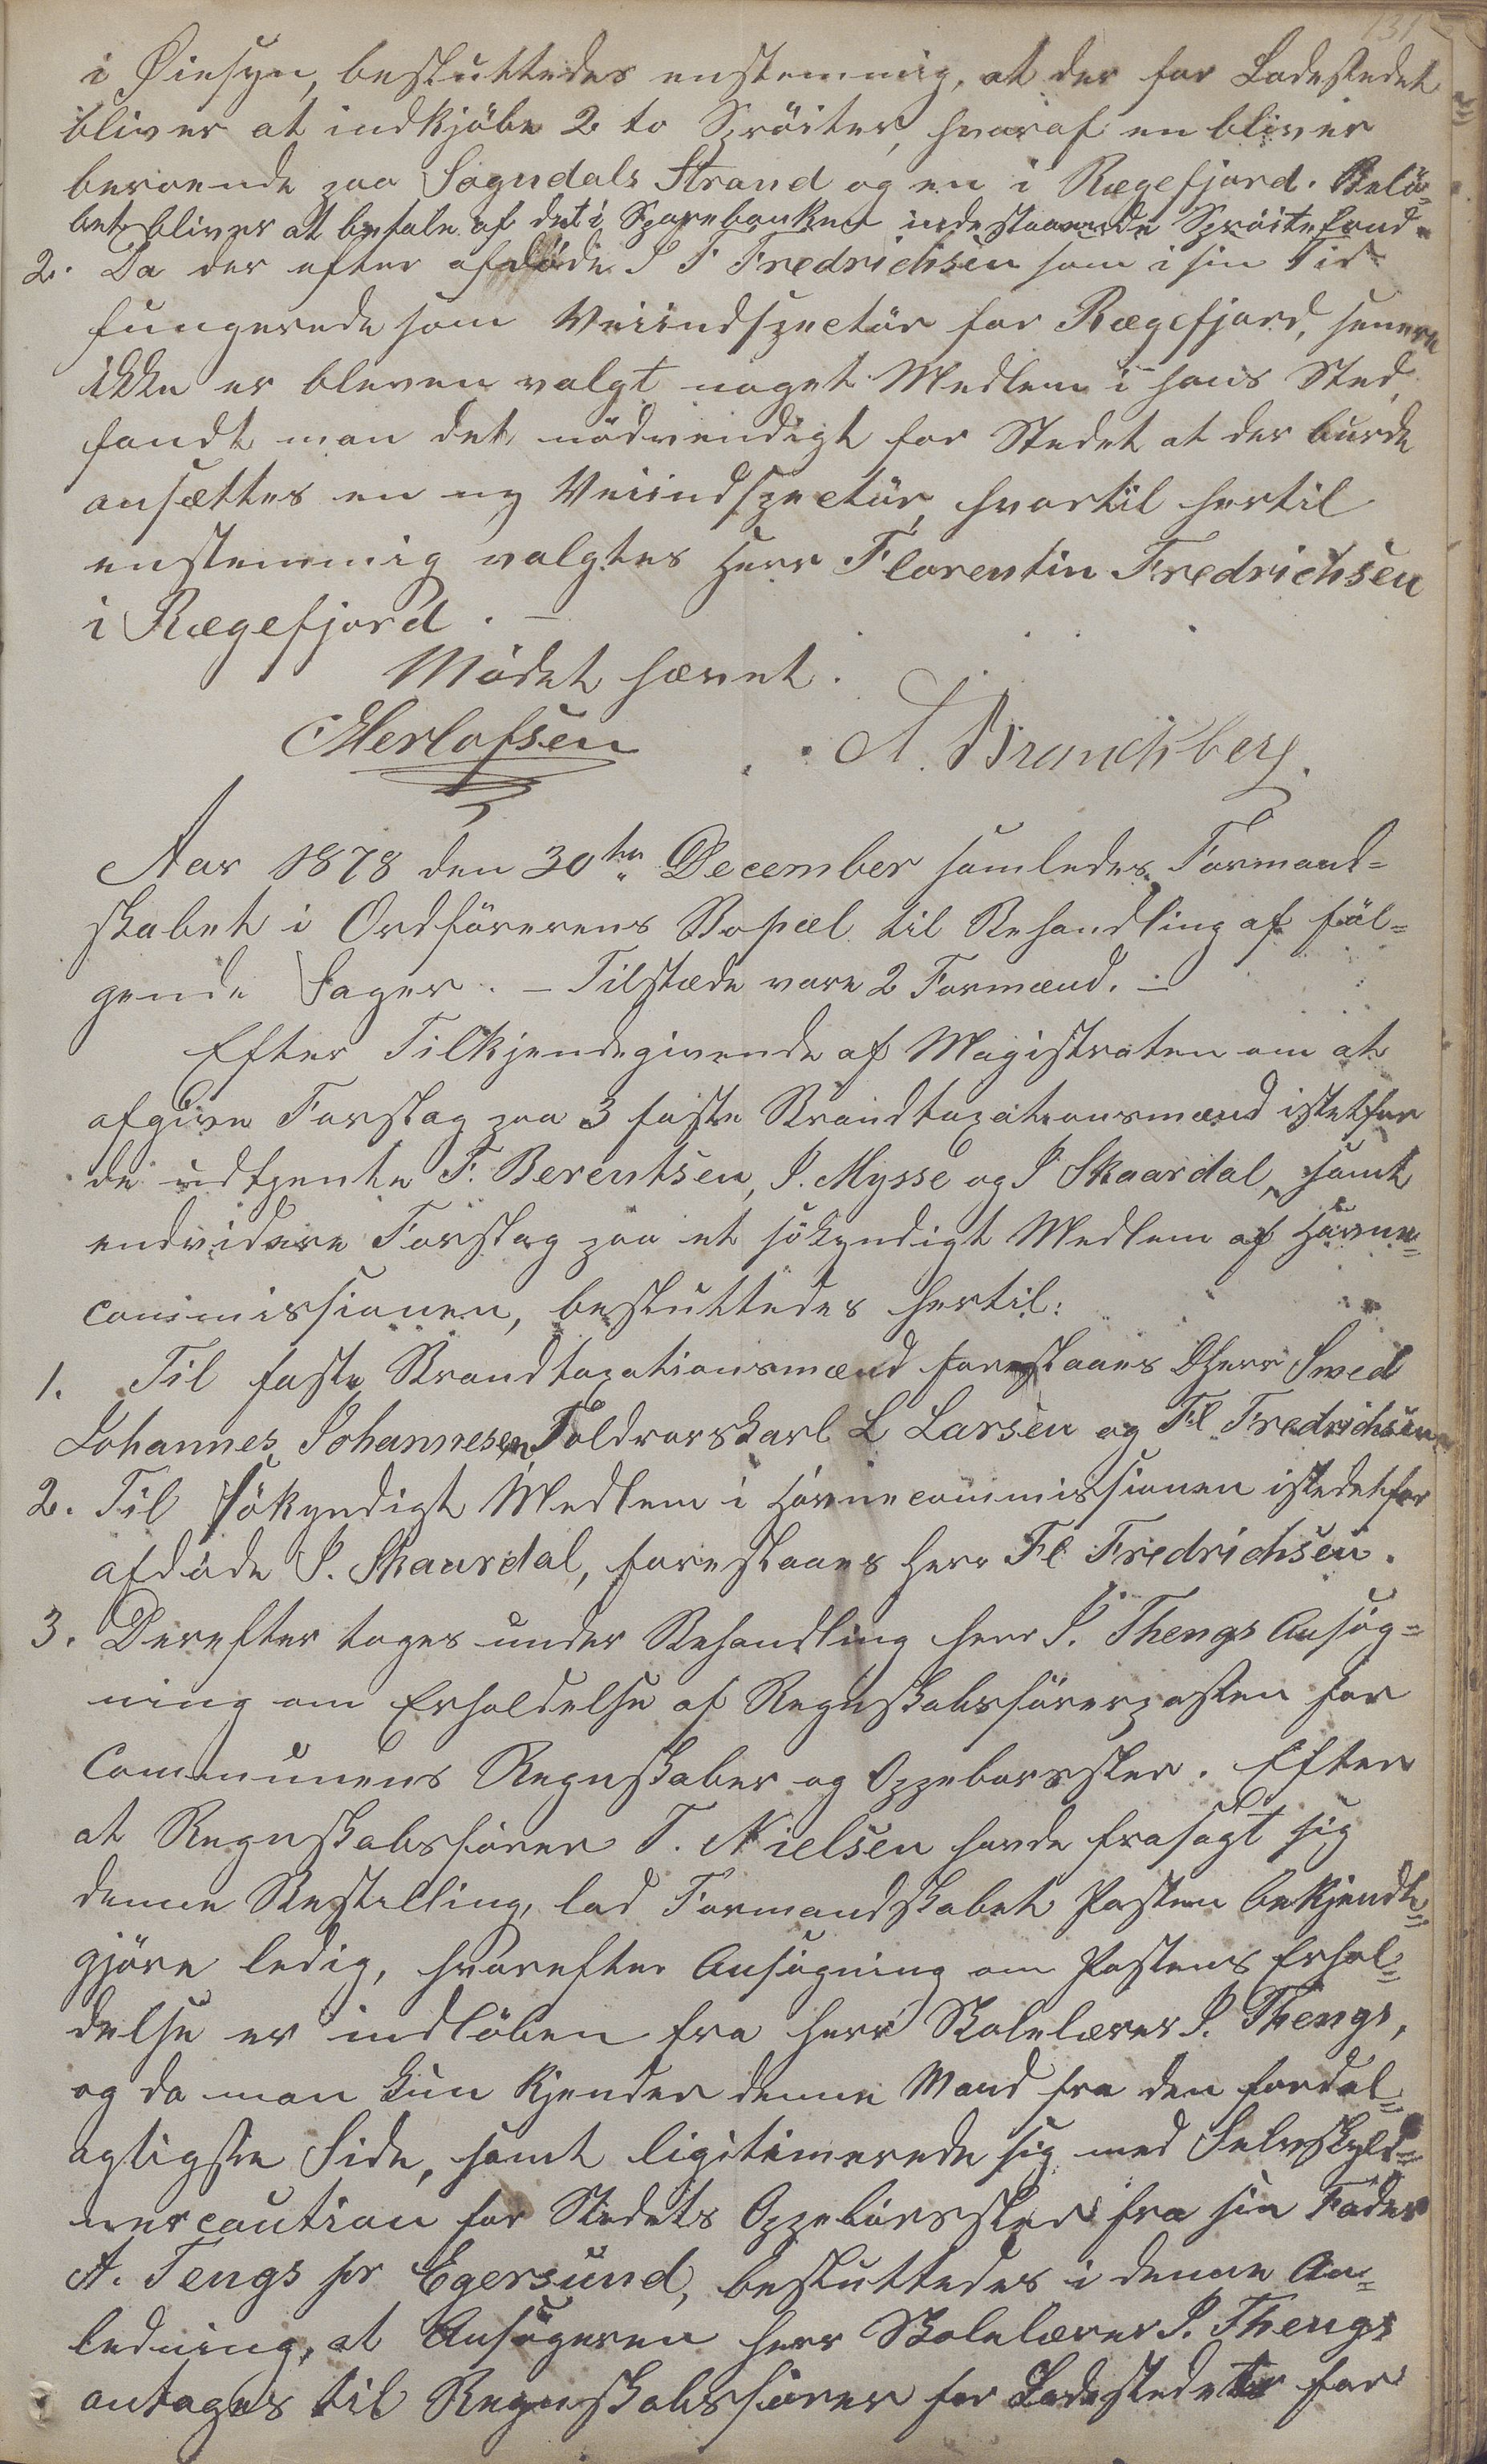 131
i Øiesyn, besluttedes enstemmig, at der for Ladestedet
bliver at indkjöbe 2 to Spröiter, hvoraf en bliver
beroende paa Sogndals Strand og en i Rægefjord. Belö-
bet bliver at betale af det i Sparebanken indestaaende Spröitefond.
2. Da der efter afdöde J F Fredrichsen som i sin Tid
fungerede som Veiindspectör for Rægefjord, senere
ikke er bleven valgt noget Medlem i hans Sted,
fandt man det nödvendigt for Stedet at der burde
ansættes en ny Veiindspectör, hvortil hertil
enstemmig valgtes Herr Florentin Fredrichsen
i Rægefjord. —
Mödet hævet.
Herlofsen A. Branchberg.
Aar 1878 den 30te December samledes Formand=
skabet i Ordförerens Bopæl til Behandling af föl=
gende Sager. — Tilstæde vare 2 Formænd. —
Efter Tilkjendegivende af Magistraten om at
afgive Forslag paa 3 faste Brandtaxationsmænd istetfor
de udtjente F. Berentsen, J. Mysse og J Skaardal, samt
endvidere Forslag paa et sökyndigt Medlem af Havne=
commissionen, besluttedes hertil:
1. Til faste Brandtaxationsmænd foreslaaes DHerr Smed
Johannes Johannesen, Toldrorskarl L Larsen og Fl Fredrichsen
2. Til sökyndigt Medlem i Havnecommissionen istedetfor
afdöde J. Skaardal, foreslaaes Herr Fl Fredrichsen.
3. Derefter toges under Behandling Herr J. Thengs Ansög=
ning om Erholdelse af Regnskabsförerposten for
Communens Regnskaber og Oppebørsler. Efter
at Regnskabsförer T. Nielsen havde frasagt sig
denne Bestilling, lod Formandskabet Posten bekjendt=
gjöre ledig, hvorefter Ansögning om Postens Erhol=
delse er indlöben fra Herr Skolelærer J. Thengs,
og da man kun kjender denne Mand fra den fordel=
agtigste Side, samt ligitimerede sig med Selvskyld=
nercaution for Stedets Oppebørsler fra sin Fader
A. Tengs pr Egersund, besluttedes i denne An=
ledning, at Ansögeren Herr Skolelærer J. Thengs
antages til Regnskabsförer for Ladestedet for